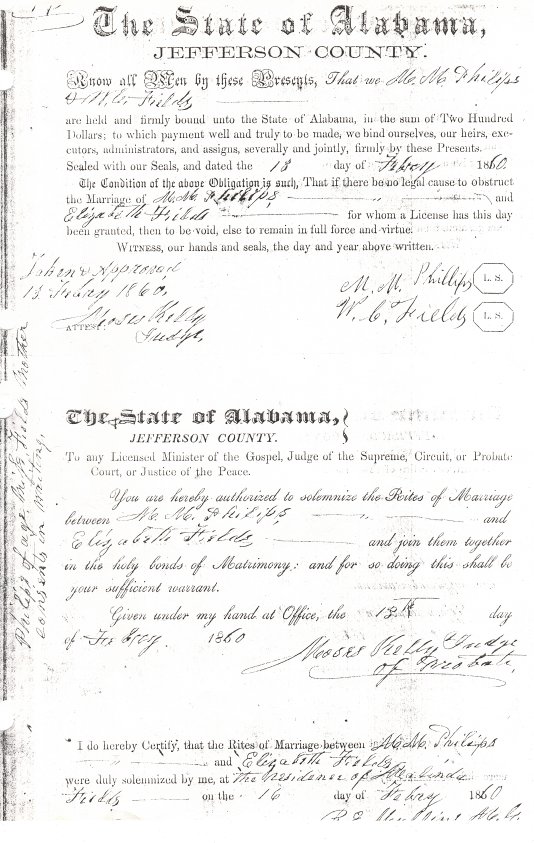 The State of Alabama,
JEFFERSON COUNTY.
Know all Men by these Presents, That we M. M. Philips
& W. C. Fields
are held and firmly bound unto the State of Alabama, in the sum of Two Hundred
Dollars; to which payment well and truly to be made, we bind ourselves, our heirs, exe-
cutors, administrators, and assigns, severally and jointly, firmly by these Presents.
Sealed with our Seals, and dated the 13 day of Febry 1860.
The Condition of the above Obligation is such, That if there be no legal cause to obstruct
the Marriage of M. M. Philips and
Elizabeth Fields for whom a License has this day
been granted, then to be void, else to remain in full force and virtue.
WITNESS, our hands and seals, the day and year above written.
Taken & Approved
13 Febry 1860,
M. M. Phillips L. S.
W. C. Fields L. S.
ATTEST. Moses Kelly
Judge,
The State of Alabama,
JEFFERSON COUNTY.
To any Licensed Minister of the Gospel, Judge of the Supreme, Circuit, or Probate
Court, or Justice of the Peace.
You are hereby authorized to solemnize the Rites of Marriage
between M. M. Philips, and
Elizabeth Fields and join them together
in the holy bonds of Matrimony; and for so doing this shall be
your sufficient warrant.
Given under my hand at Office, the 13th day
of Febry. 1860
Moses Kelly Judge
of Probate,
I do hereby Certify, that the Rites of Marriage between M. M. Philips
and Elizabeth Fields
were duly solemnized by me, at the residence of Malinda
Fields on the 16 day of Febry 1860
Philips of age Miss Fields Mother
consents in writing.